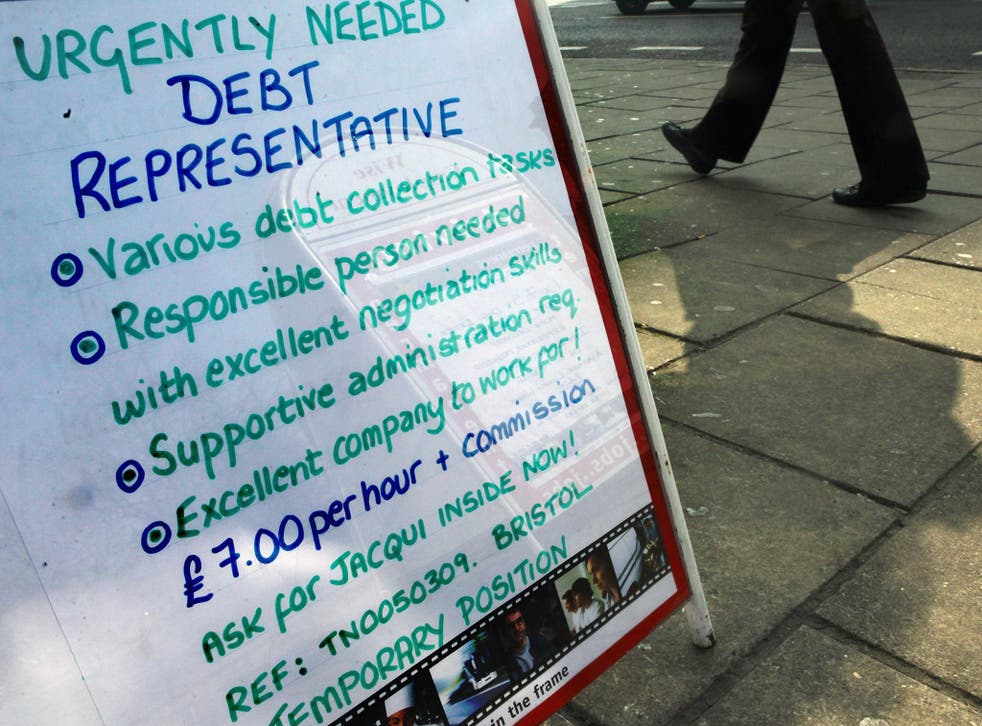 URGENTLY NEEDED
DEBT
REPRESENTATIVE
Various debt collection tasks
Responsible person needed
with excellent negotiation skills
Supportive administration req.
Excellent company to work for!
£7.00 per hour + commission
ASK for JACQUI INSIDE NOW!
REF: TN0050309. BRISTOL
TEMPORARY POSITION
in the frame